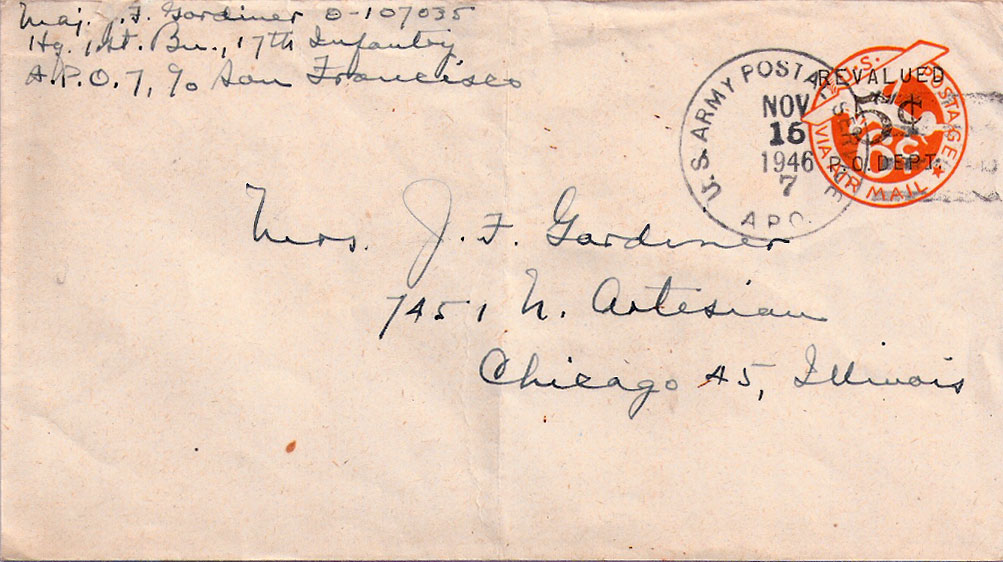 Maj. J. F. Gardiner O-107035
Hq. 1st. Bn., 17th Infantry
A.P.O. 7, c/o San Francisco
U.S. ARMY POSTAL SERVICE
NOV
16
1946
7
A.P.O.
U.S. POSTAGE
REVALUED
5¢
6¢
P.O. DEPT.
VIA AIR MAIL
Mrs. J. F. Gardiner
7451 N. Artesian
Chicago 45, Illinois